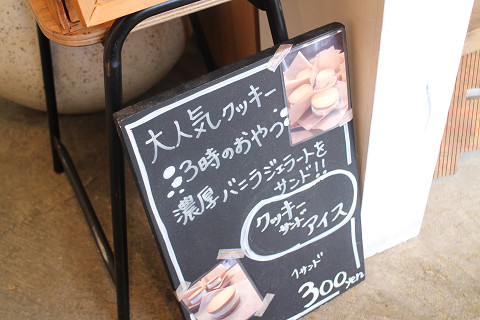 大人気クッキー
3時のおやつ
濃厚バニラジェラートを
サンド!!
クッキー
サンド
アイス
1サンド
300yen